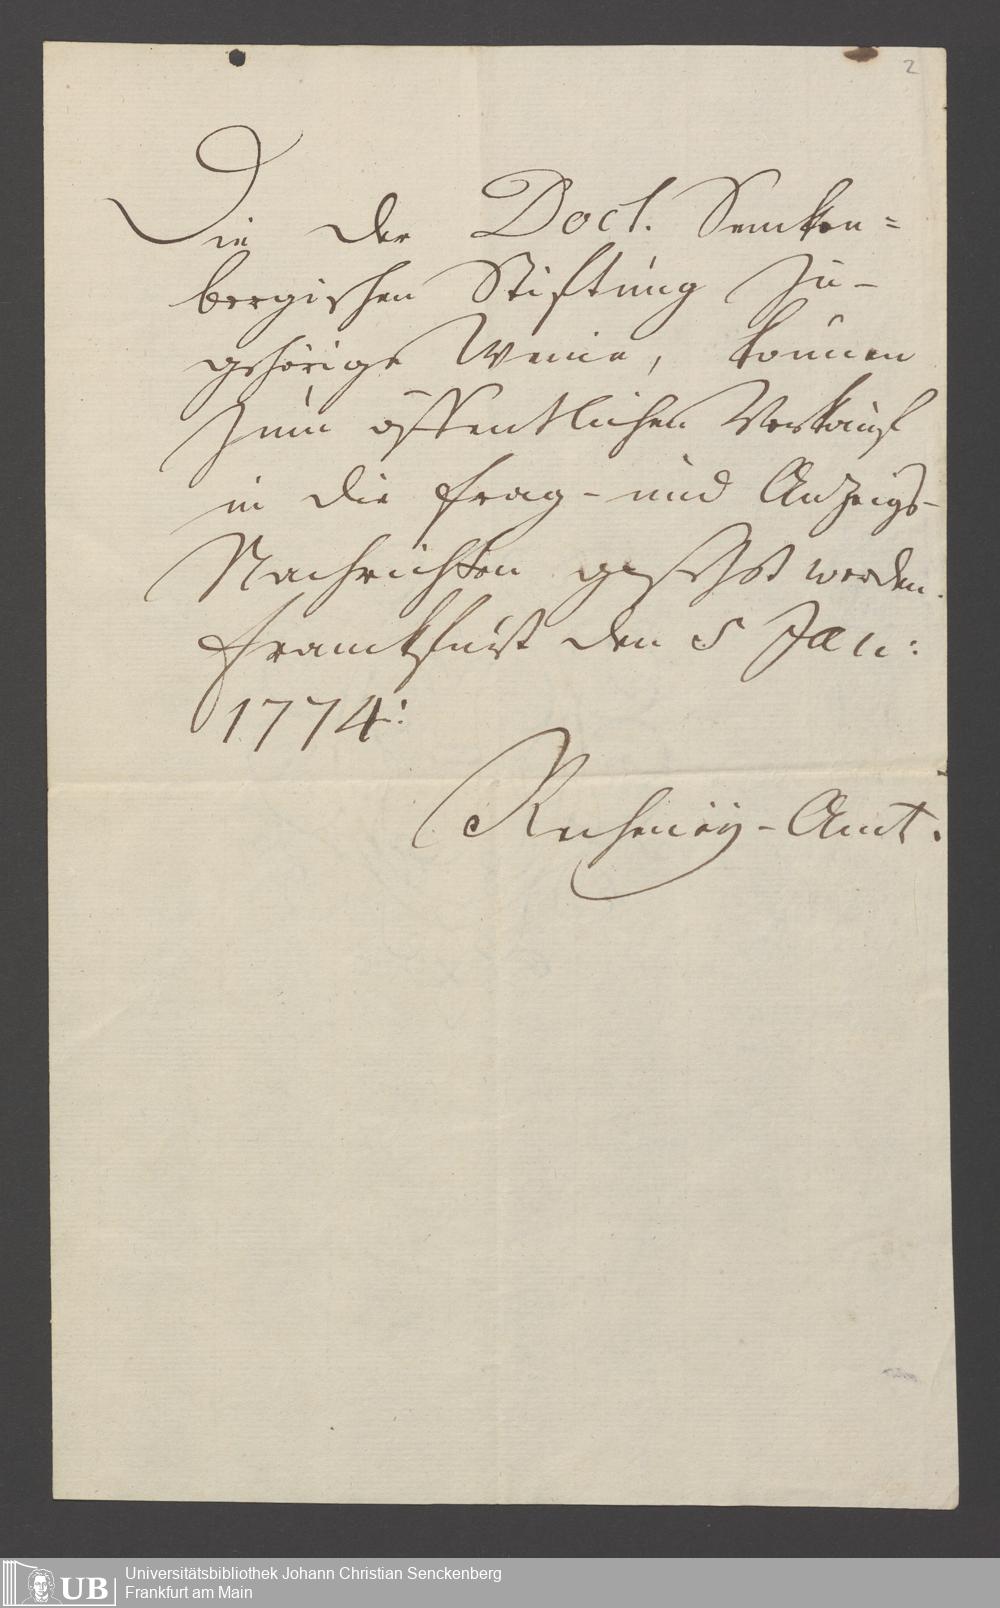 2
Die der Doct. Sencken=
bergischen Stiftung zu-
gehörige Weine, können
zum öffentlichen Verkauf
in die Frag- und Anzeigs-
Nachrichten gesetzt werden.
Franckfurt den 5 Jan:
1774:
Recheney-Amt.
UB
Universitätsbibliothek Johann Christian Senckenberg
Frankfurt am Main